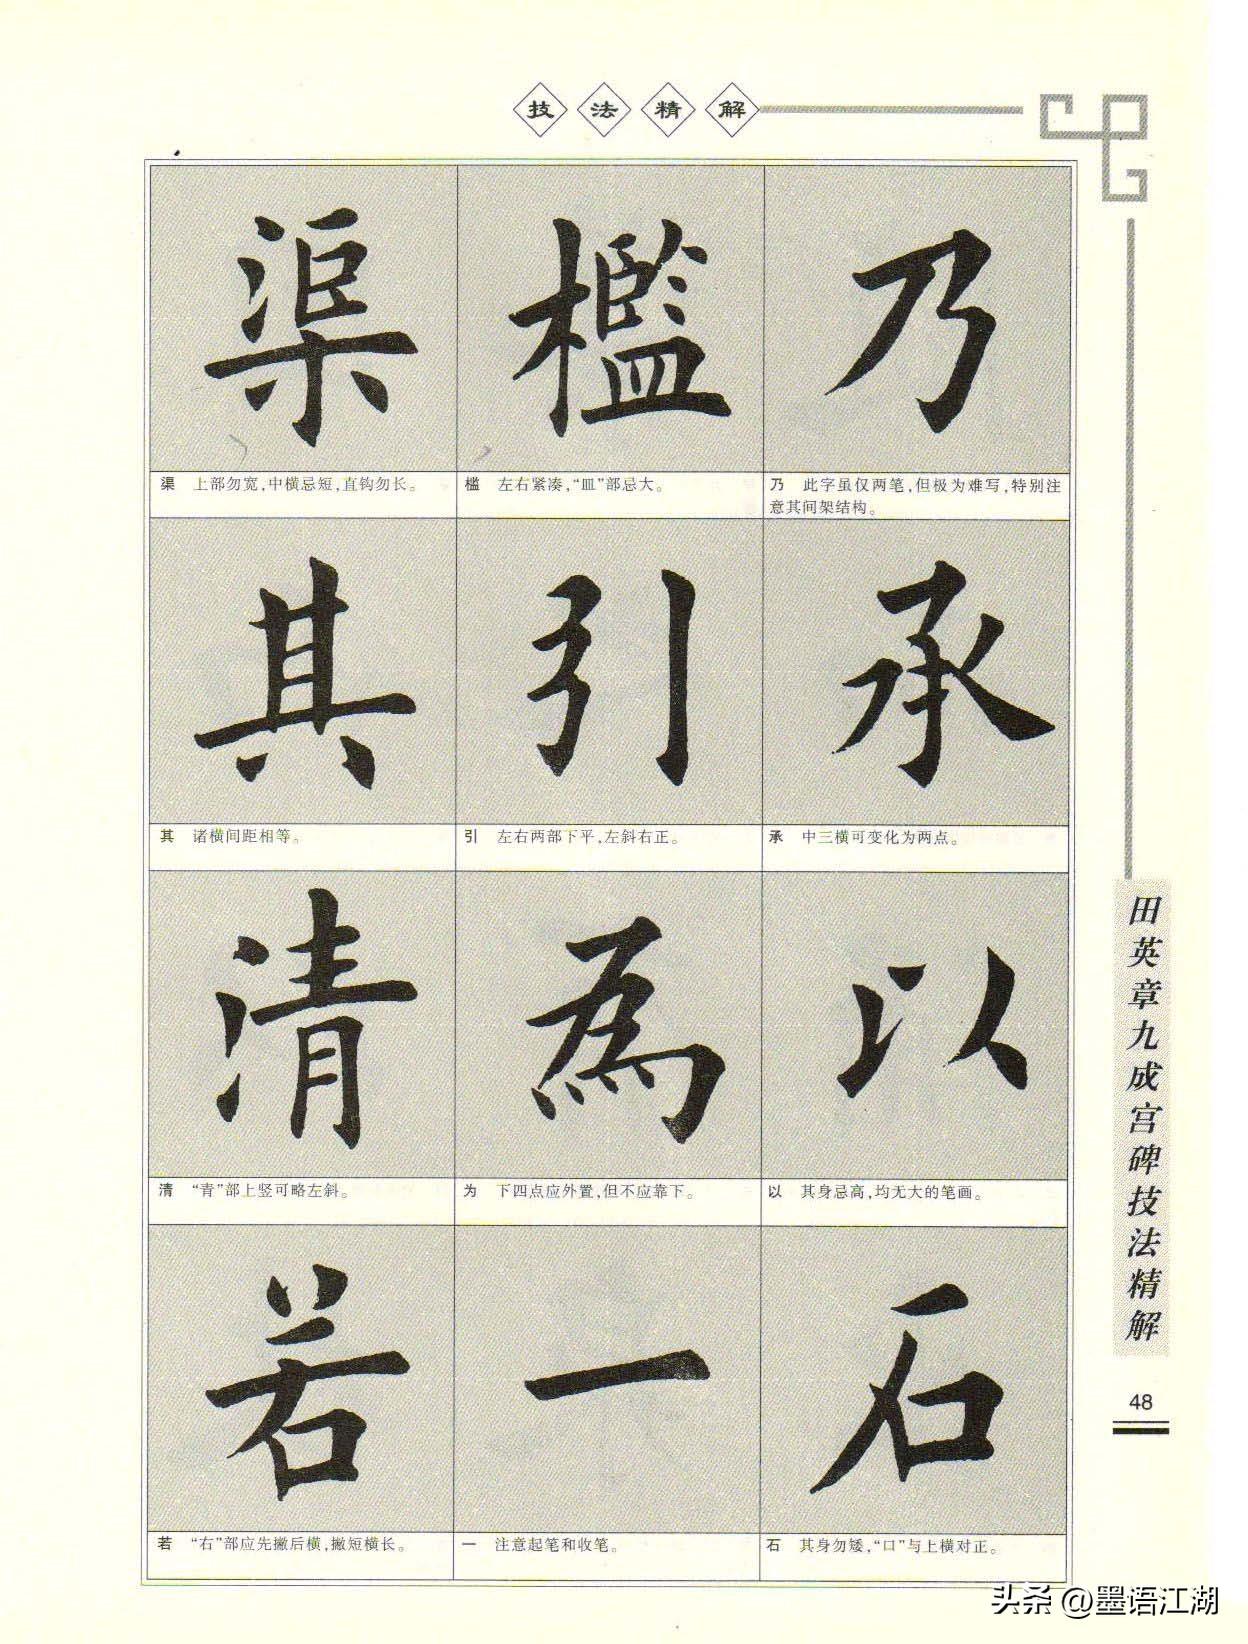 技法精解
渠 檻 乃
渠 上部勿宽,中横忌短,直钩勿长。
槛 左右紧凑,“皿”部忌大。
乃 此字虽仅两笔,但极为难写,特别注
意其间架结构。
其 引 承
其 诸横间距相等。
引 左右两部下平,左斜右正。
承 中三横可变化为两点。
清 為 以
清 “青”部上竖可略左斜。
为 下四点应外置,但不应靠下。
以 其身忌高,均无大的笔画。
若 一 石
若 “右”部应先撇后横,撇短横长。
一 注意起笔和收笔。
石 其身勿矮,“口”与上横对正。
田英章九成宫碑技法精解
48
头条 @墨语江湖